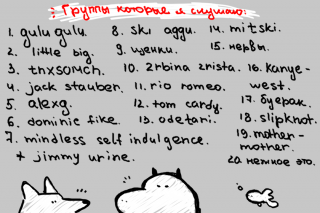 Группы которые я слушаю:
1. gulu gulu.
2. little big.
3. тнхsомсн.
4. jack stauber.
5. alexg.
6. dominic fike.
7. mindless self indulgence.
+ jimmy urine.
8. ski aggu.
9. щенки.
10. 2rbina 2rista.
11. rio romeo.
12. tom cardy.
13. odetari.
14. mitski.
15. нервы.
16. kanye-
west.
17. буерак.
18. slipknot.
19. mother-
mother.
20. нежное это.